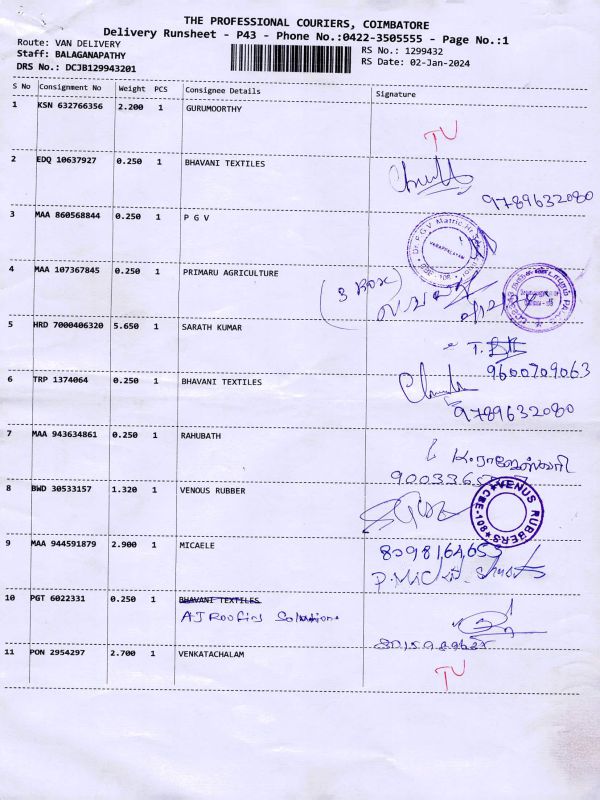 THE PROFESSIONAL COURIERS, COIMBATORE
Delivery Runsheet - P43 - Phone No.:0422-3505555 - Page No.:1
Route: VAN DELIVERY
RS No.: 1299432
Staff: BALAGANAPATHY
RS Date: 02-Jan-2024
DRS No.: DCJB129943201
S No Consignment No Weight PCS Consignee Details Signature
1 KSN 632766356 2.200 1 GURUMOORTHY
TU
2 EDQ 10637927 0.250 1 BHAVANI TEXTILES
9789632080
3 MAA 860568844 0.250 1 P G V
4 MAA 107367845 0.250 1 PRIMARU AGRICULTURE
(3 BOX)
5 HRD 7000406320 5.650 1 SARATH KUMAR
9600709063
6 TRP 1374064 0.250 1 BHAVANI TEXTILES
9789632080
7 MAA 943634861 0.250 1 RAHUBATH
K.ராஜேஸ்வரி
8 BWD 30533157 1.320 1 VENOUS RUBBER
VENUS RUBBERS
CBE-108
9 MAA 944591879 2.900 1 MICAELE
8098164653
10 PGT 6022331 0.250 1 BHAVANI TEXTILES
AJ Roofing Solutions
11 PON 2954297 2.700 1 VENKATACHALAM
TU